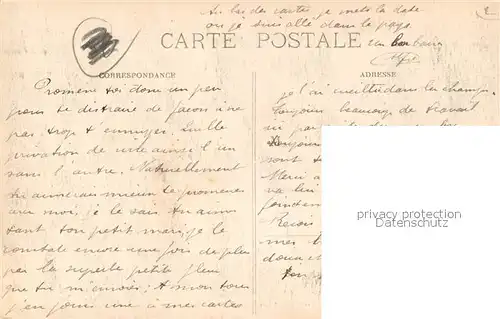 Au bas des cartes, je mets la date
où je suis allé dans le pays
CARTE POSTALE
un bon baiser
CORRESPONDANCE
ADRESSE
Promène toi donc un peu
pour te distraire de façon à ne
pas trop t'ennuyer. Quelle
privation de vivre ainsi l'un
sans l'autre. Naturellement
tu aimerais mieux te promener
avec moi, je le sais tu aimes
tant ton petit mari, je le
constate encore une fois de plus
par la superbe petite fleur
que tu m'envoies; à mon tour
j'en joins une à mes cartes
je l'ai cueillie dans les champs.
Toujours beaucoup de travail
Toujours
sont
Merci
va lui
Reçois
mes
doux et
privacy protection
Datenschutz